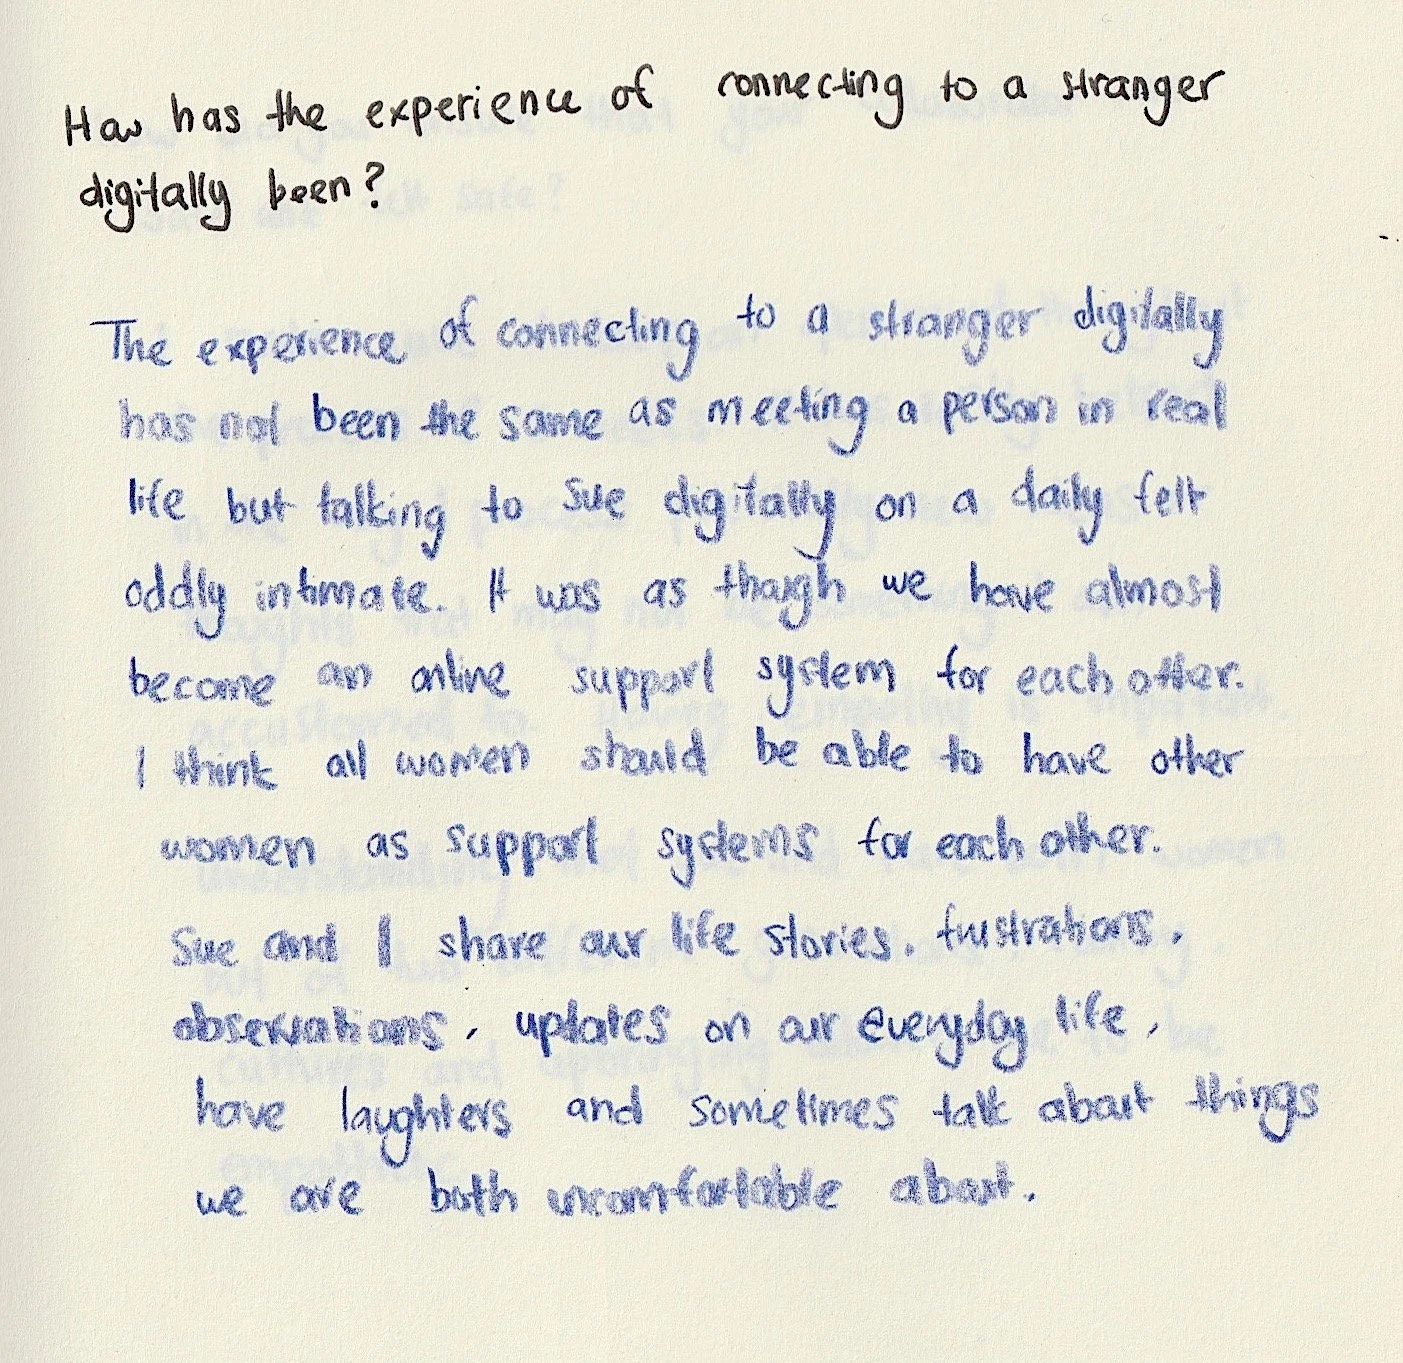 How has the experience of connecting to a stranger
digitally been?
The experience of connecting to a stranger digitally
has not been the same as meeting a person in real
life but talking to Sue digitally on a daily felt
oddly intimate. It was as though we have almost
become an online support system for each other.
I think all women should be able to have other
women as support systems for each other.
Sue and I share our life stories, frustrations,
observations, updates on our everyday life,
have laughters and sometimes talk about things
we are both uncomfortable about.